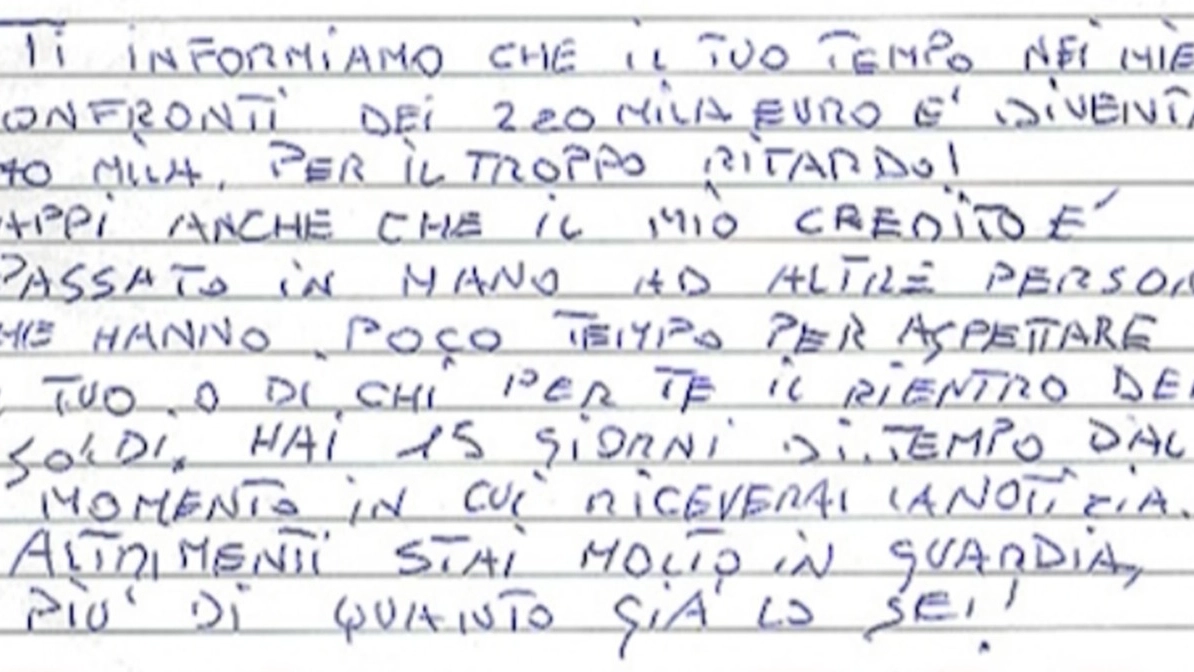 TI INFORMIAMO CHE IL TUO TEMPO NEI MIE
ONFRONTI DEI 220 MILA EURO E' DIVENTA
40 MILA. PER IL TROPPO RITARDO!
APPI ANCHE CHE IL MIO CREDITO E'
PASSATO IN MANO AD ALTRE PERSON
HE HANNO POCO TEMPO PER ASPETTARE
TUO O DI CHI PER TE IL RIENTRO DEI
SOLDI. HAI 15 GIORNI DI TEMPO DAL
MOMENTO IN CUI RICEVERAI LA NOTIZIA.
ALTRIMENTI STAI MOLTO IN GUARDIA,
PIU' DI QUANTO GIA' LO SEI!